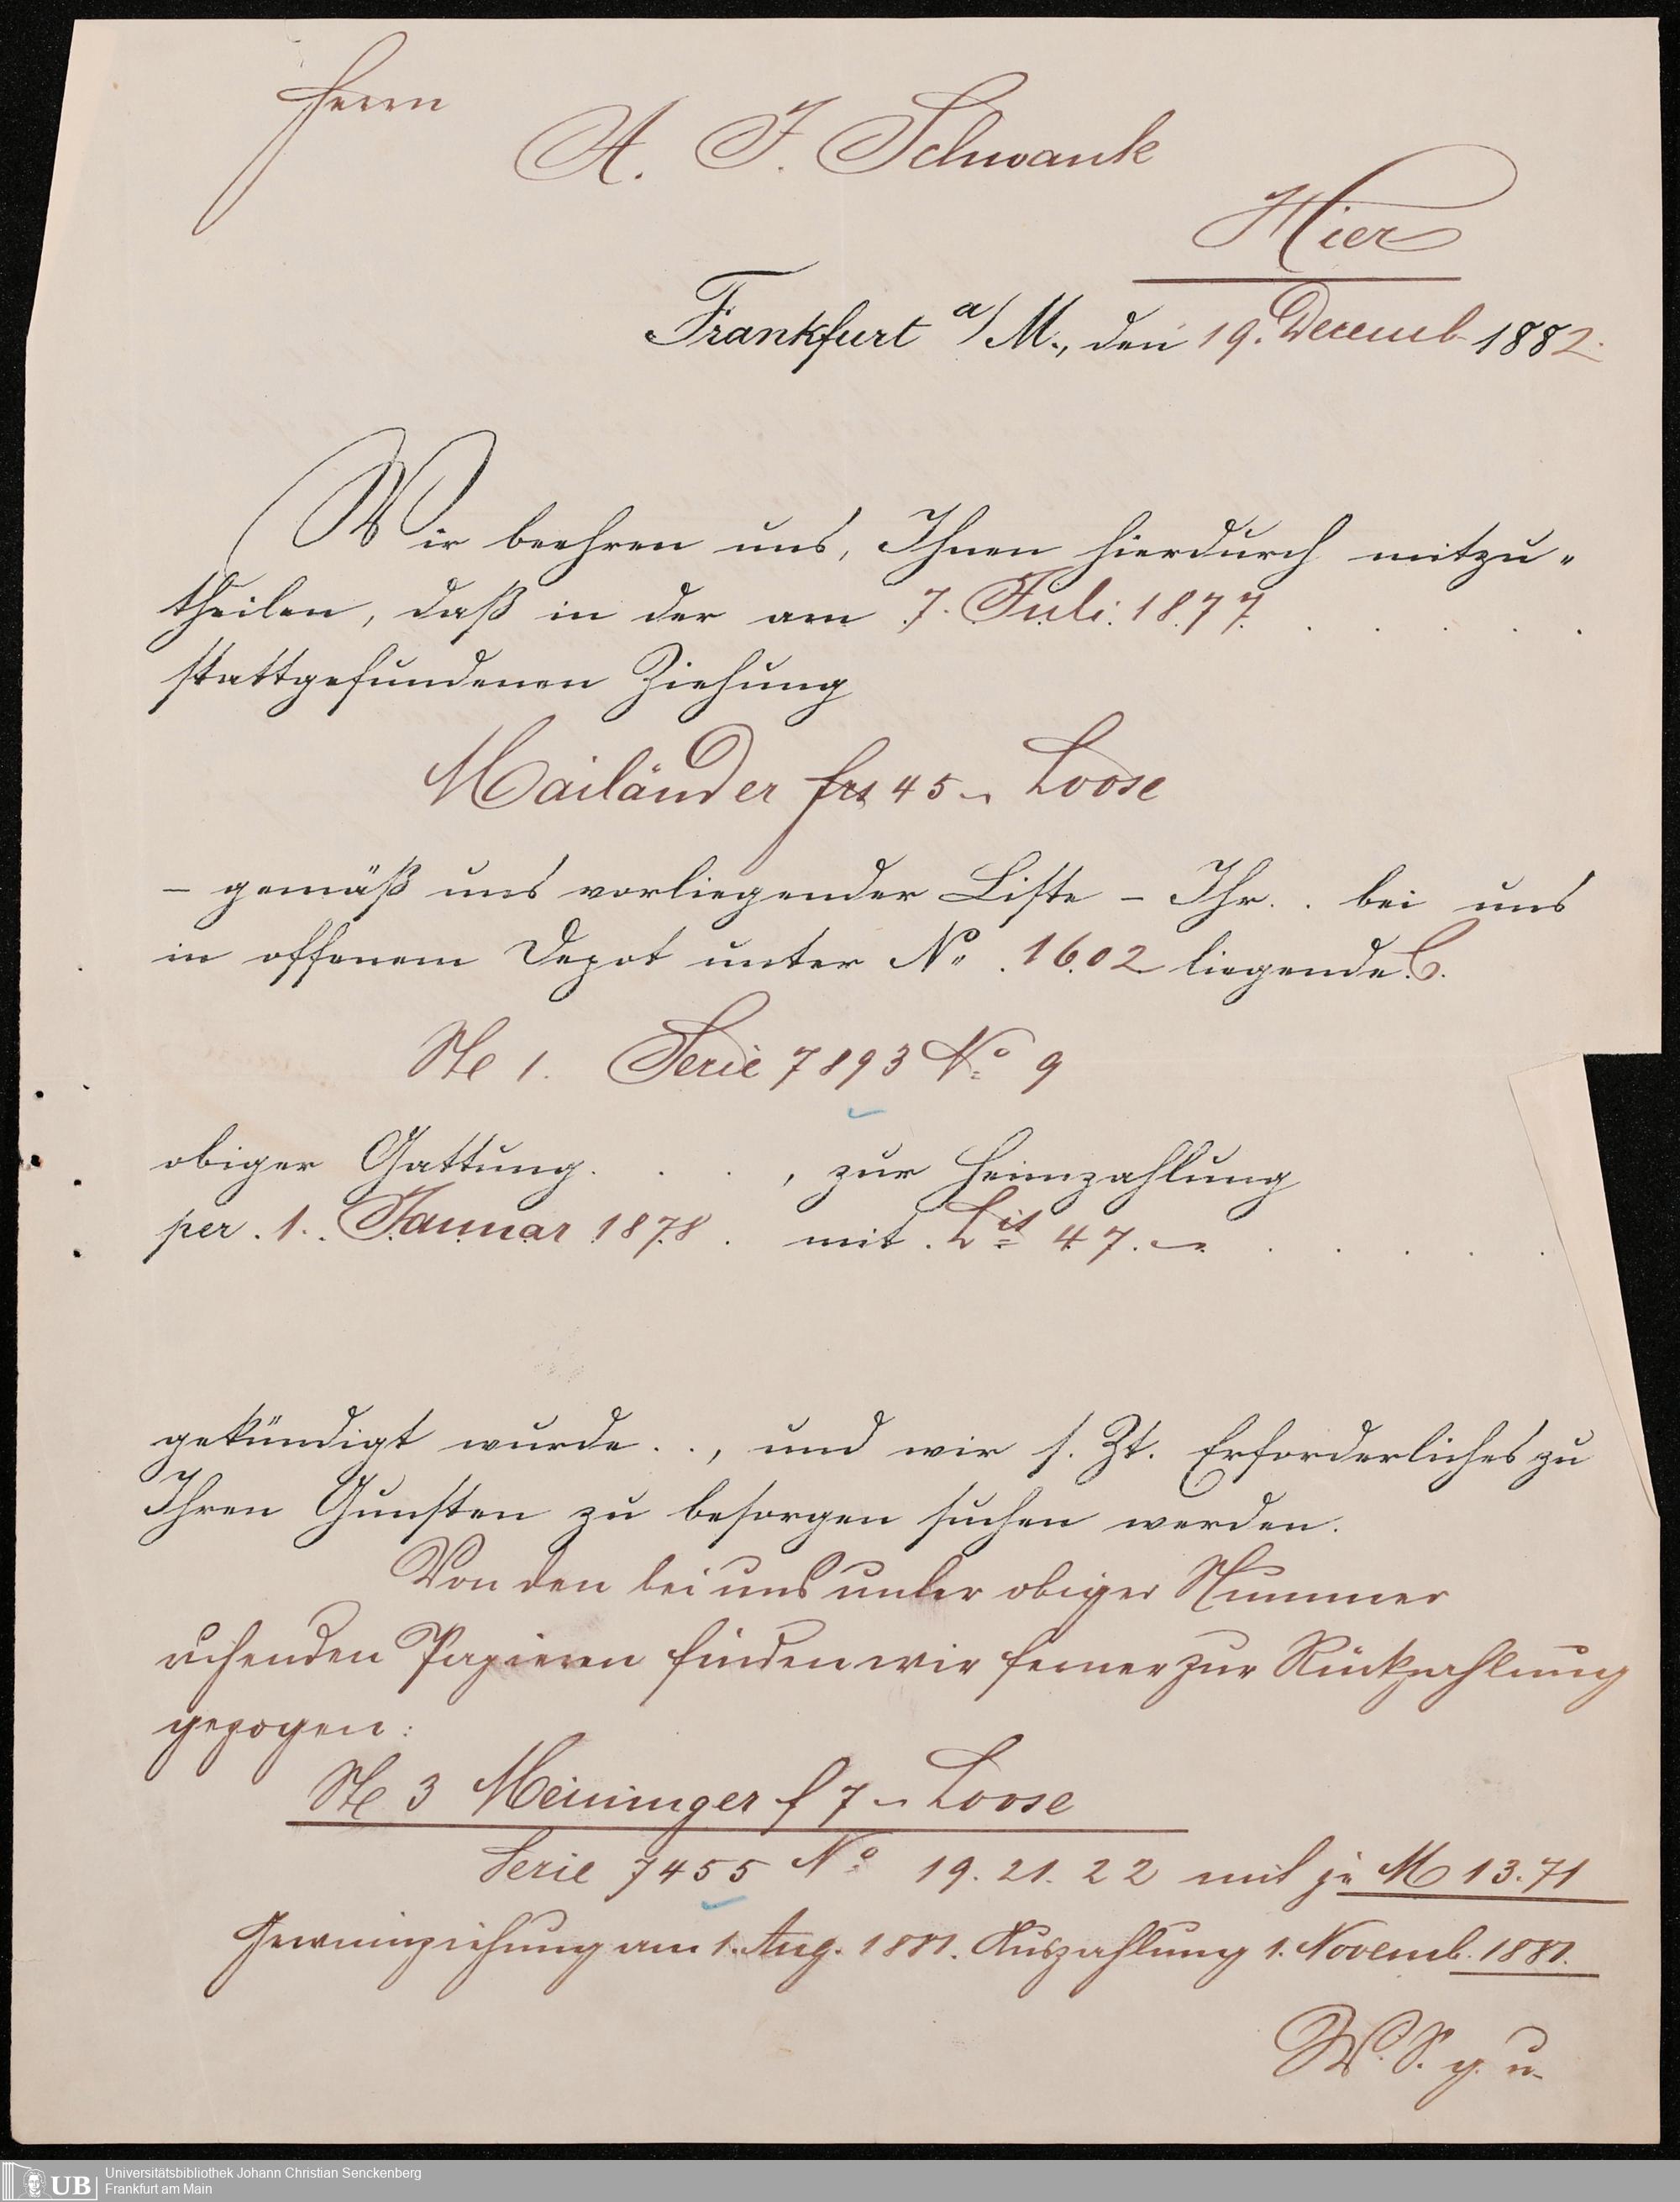 Herrn
A. J. Schwank
Hier
Frankfurt a/M., den 19. Decemb. 1882.
Wir beehren uns, Ihnen hierdurch mitzu-
theilen, daß in der am 7. Juli 1877. . . . .
stattgefundenen Ziehung
Mailänder frs 45 – Loose
– gemäß uns vorliegender Liste – Ihr . . bei uns
in offenem Depot unter No 1602 liegende .s.
St 1. Serie 7893 No 9
obiger Gattung . . . , zur Heimzahlung
per . 1. Januar 1878 . mit . Lit 47. – . . . . .
gekündigt wurde . . , und wir s. Zt. Erforderliches zu
Ihren Gunsten zu besorgen suchen werden.
Von den bei uns unter obiger Nummer
ruhenden Papieren finden wir ferner zur Rückzahlung
gezogen:
St 3 Meininger f 7 – Loose
Serie 7455 No 19. 21. 22 mit je M 13.71
Gewinnziehung am 1. Aug. 1881. Auszahlung 1. Novemb. 1881.
W. S. g. u.
UB
Universitätsbibliothek Johann Christian Senckenberg
Frankfurt am Main